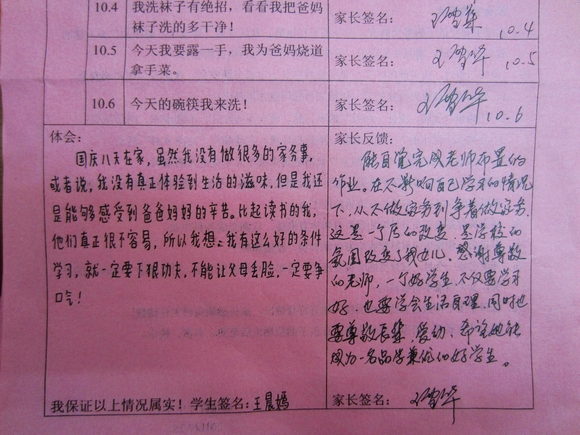 10.4 我洗袜子有绝招，看看我把爸妈 家长签名：
袜子洗的多干净！ 10.4
10.5 今天我要露一手，我为爸妈烧道 家长签名： 10.5
拿手菜。
10.6 今天的碗筷我来洗！ 家长签名： 10.6
体会：
国庆八天在家，虽然我没有做很多的家务事，
或者说，我没有真正体验到生活的滋味，但是我还
是能够感受到爸爸妈妈的辛苦。比起读书的我，
他们真正很不容易，所以我想：我有这么好的条件
学习，就一定要下狠功夫，不能让父母丢脸，一定要争
口气！
我保证以上情况属实！学生签名：王晨嫣
家长反馈：
能自觉完成老师布置的
作业。在不影响自己学习的情况
下，从不做家务到争着做家务，
这是一个质的改变，是学校的
氛围改变了我女儿。感谢尊敬
的老师，一个好学生不仅要学习
好，也要学会生活自理，同时也
要尊敬长辈，爱幼，希望她能
成为一名品学兼优的好学生。
家长签名：